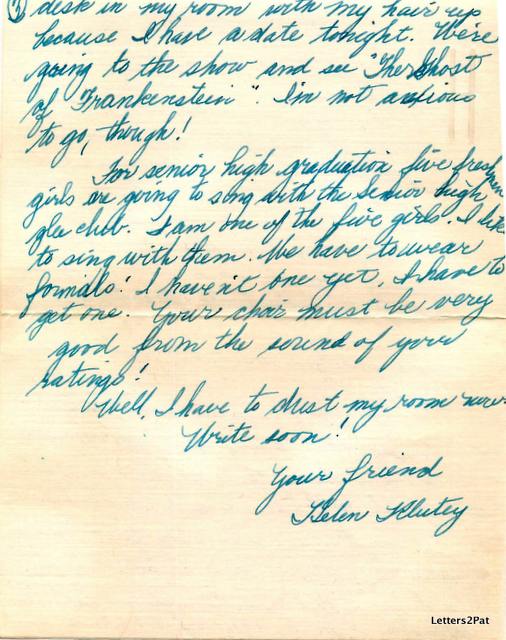 ③ desk in my room with my hair up
because I have a date tonight. We're
going to the show and see "The Ghost
of Frankenstein". I'm not anxious
to go, though!
For senior high graduation five freshmen
girls are going to sing with the Senior high
glee club. I am one of the five girls. I like
to sing with them. We have to wear
formals! I haven't one yet, I have to
get one. Your choir must be very
good from the sound of your
ratings!
Well, I have to dust my room now.
Write soon!
Your friend
Helen Klutey
Letters2Pat